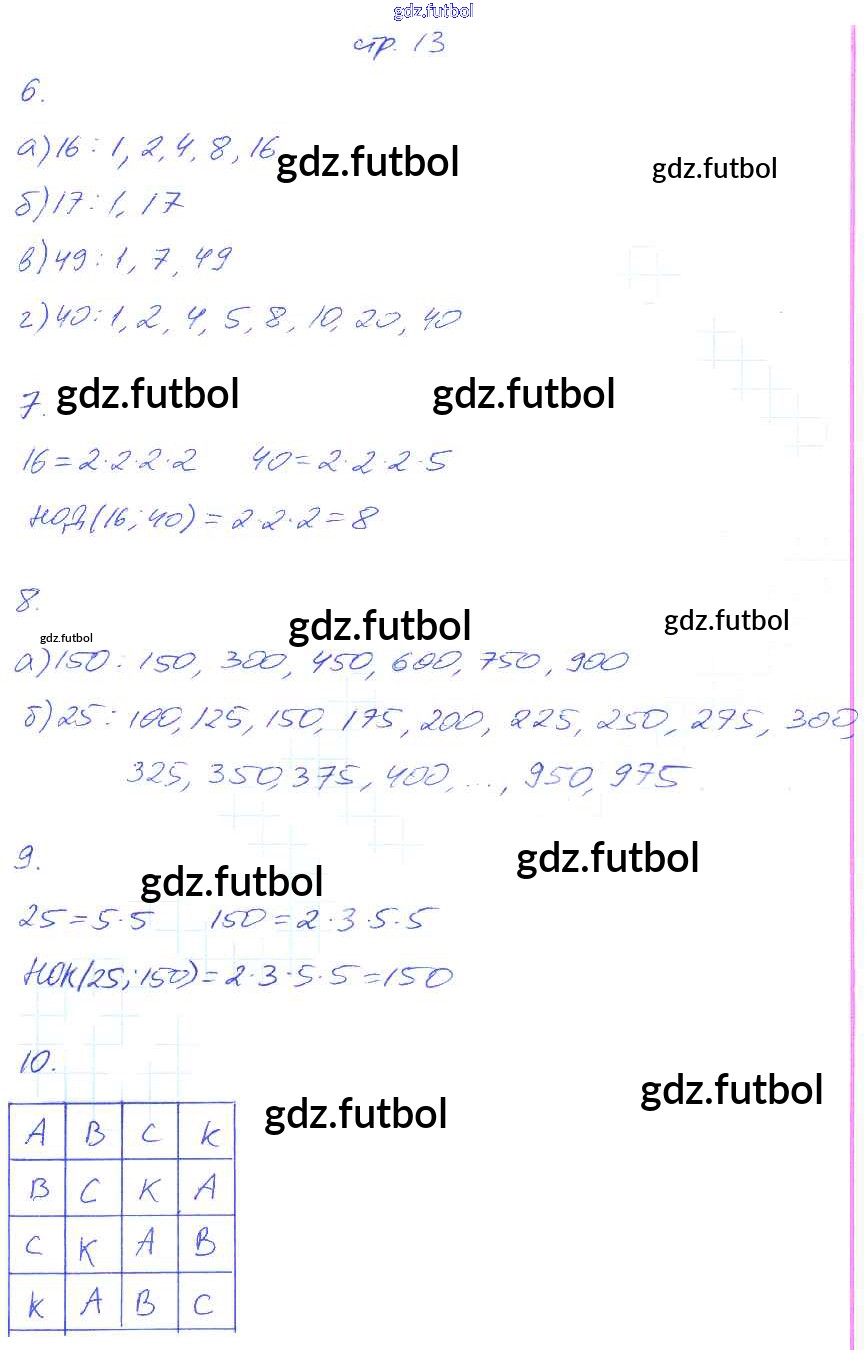 gdz.futbol
стр. 13
6.
а) 16: 1, 2, 4, 8, 16
gdz.futbol
gdz.futbol
б) 17: 1, 17
в) 49: 1, 7, 49
г) 40: 1, 2, 4, 5, 8, 10, 20, 40
7.
gdz.futbol
gdz.futbol
16 = 2·2·2·2 40 = 2·2·2·5
НОД(16; 40) = 2·2·2 = 8
8.
gdz.futbol
gdz.futbol
gdz.futbol
а) 150: 150, 300, 450, 600, 750, 900
б) 25: 100, 125, 150, 175, 200, 225, 250, 275, 300,
325, 350, 375, 400, ..., 950, 975
9.
gdz.futbol
gdz.futbol
25 = 5·5 150 = 2·3·5·5
НОК(25; 150) = 2·3·5·5 = 150
10.
gdz.futbol
gdz.futbol
А В С К
В С К А
С К А В
К А В С